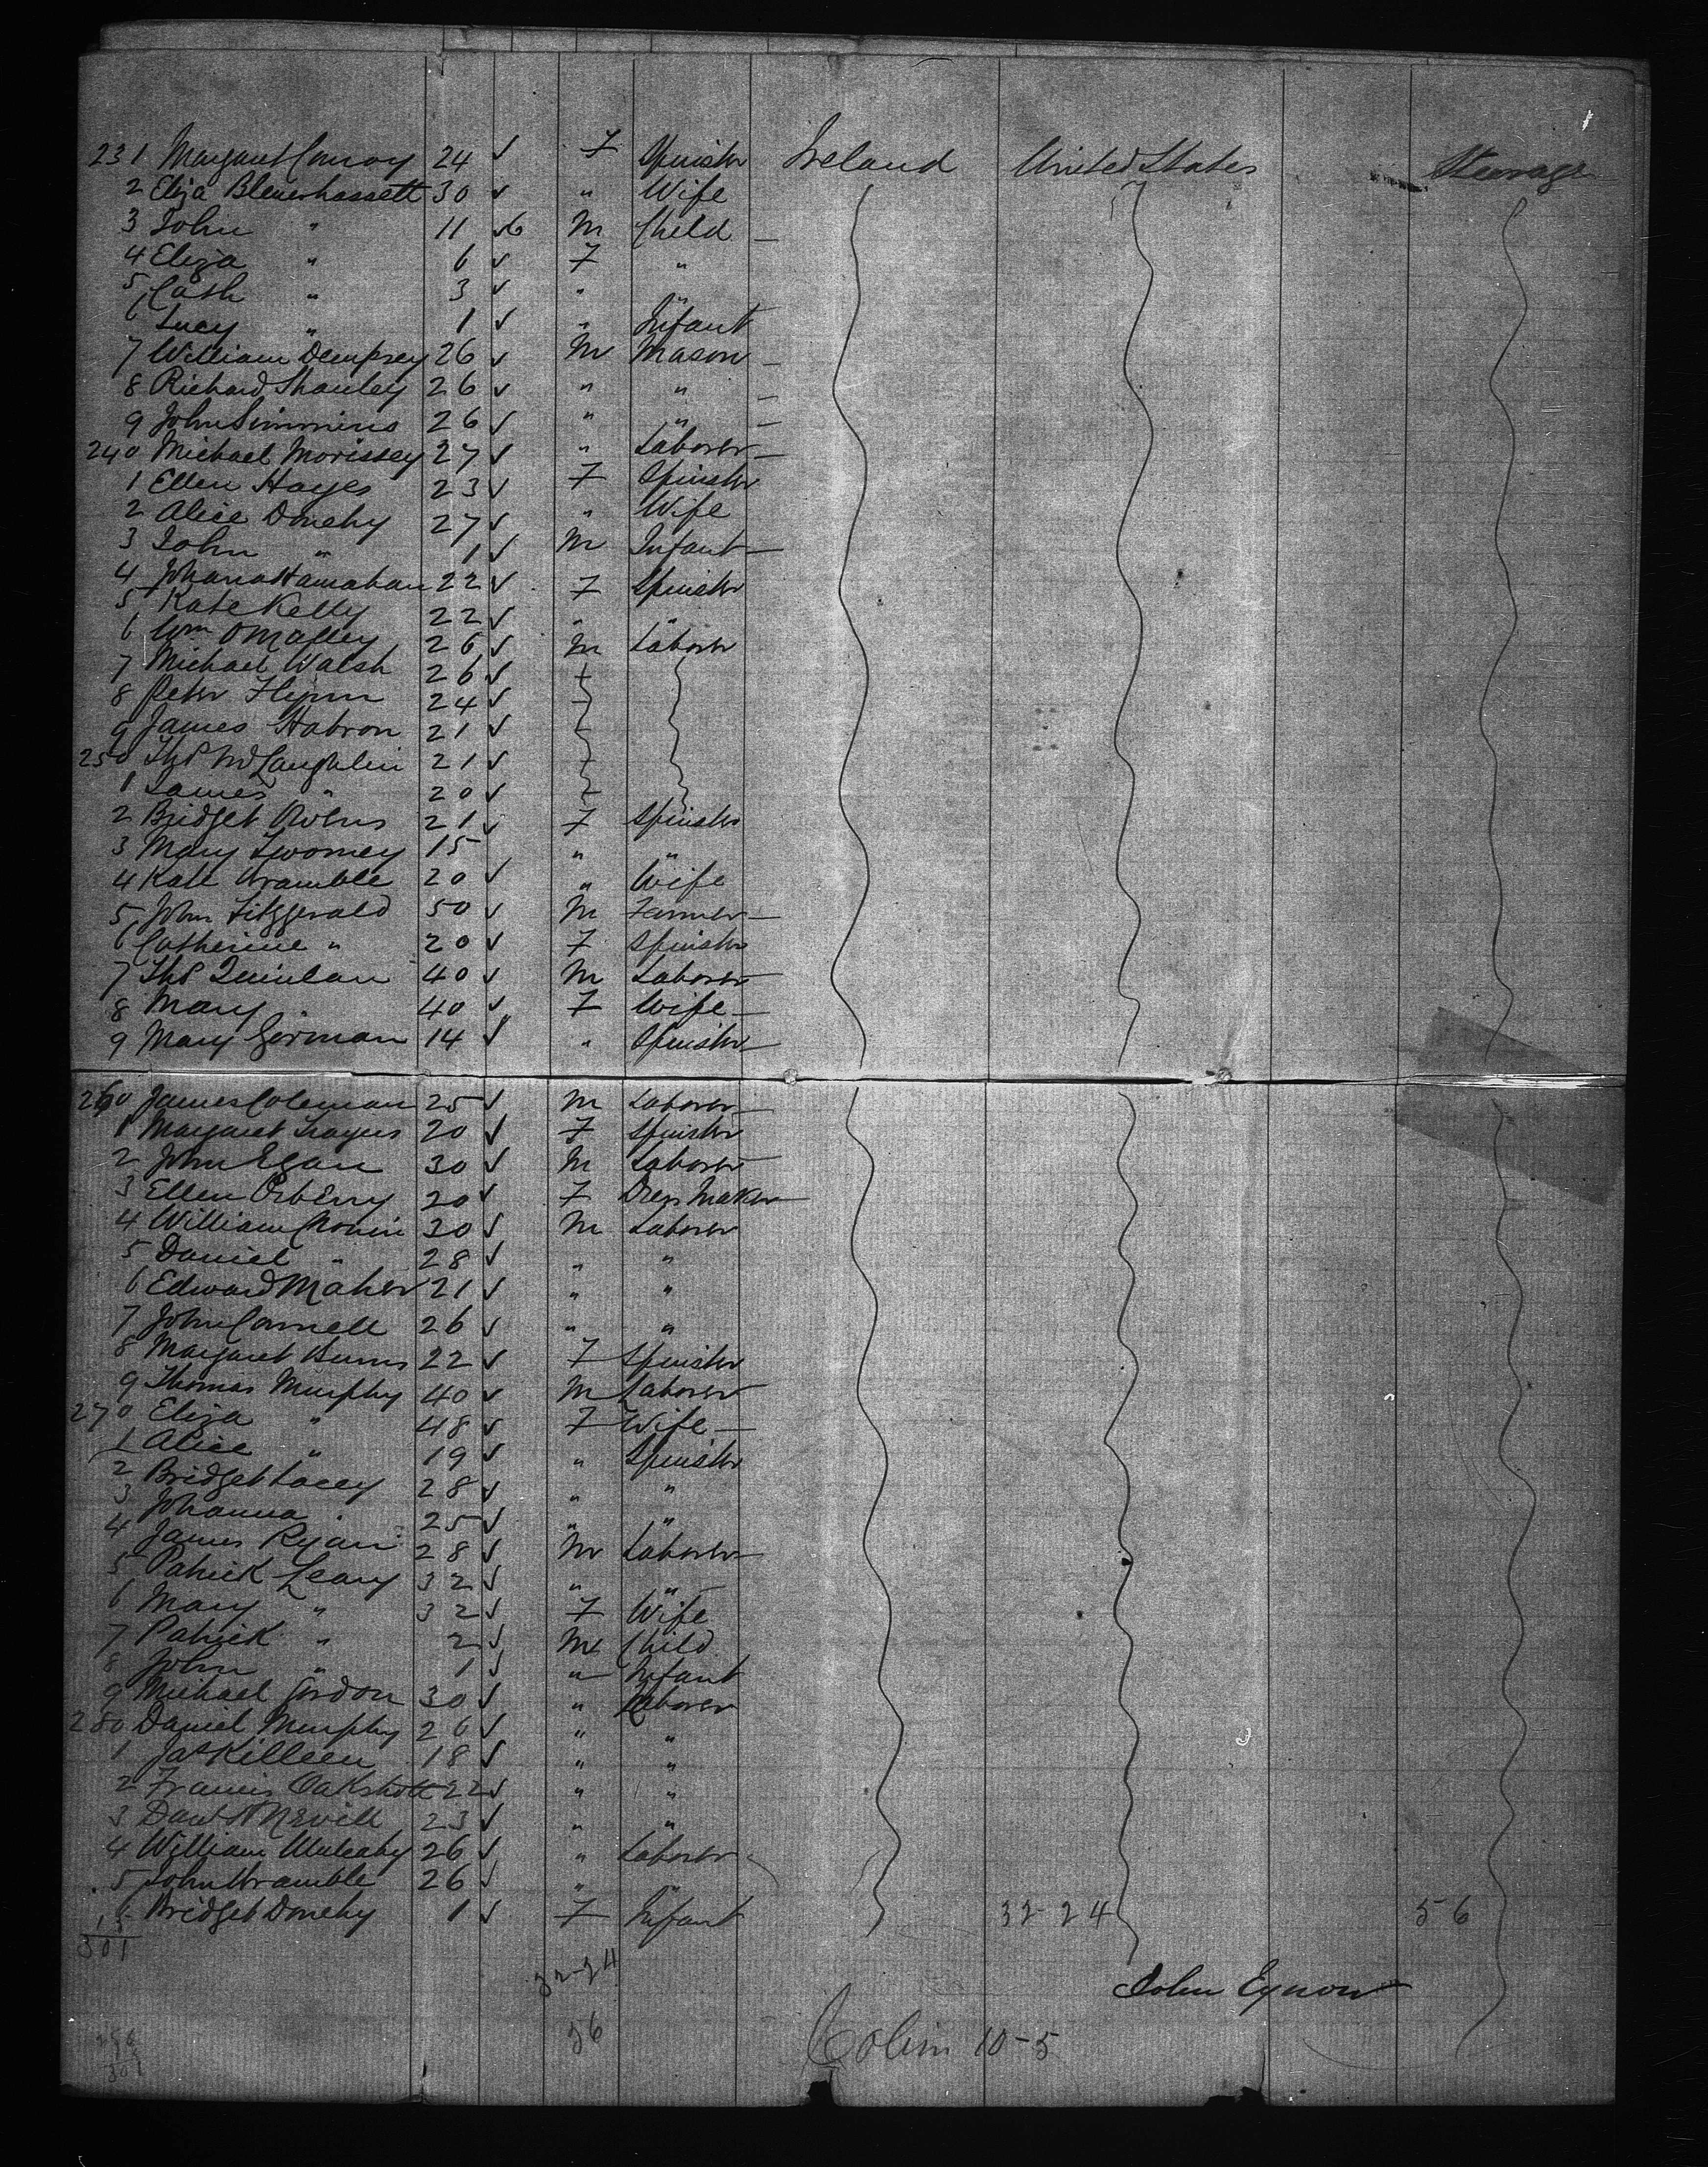 231 Margaret Conroy 24 ✓ F Spinster Ireland United States Steerage
2 Eliza Blenerhassett 30 ✓ " Wife
3 John " 11 ✓6 M Child —
4 Eliza " 6 ✓ F "
5 Cath " 3 ✓ " "
6 Lucy " 1 ✓ " Infant
7 William Dempsey 26 ✓ M Mason —
8 Richard Shanley 26 ✓ " " —
9 John Simmins 26 ✓ " " —
240 Michael Morissey 27 ✓ " Laborer —
1 Ellen Hayes 23 ✓ F Spinster
2 Alice Donehy 27 ✓ " Wife
3 John " 1 ✓ M Infant —
4 Johana Hanrahan 22 ✓ F Spinster
5 Kate Kelly 22 ✓ " "
6 Wm OMalley 26 ✓ M Laborer
7 Michael Walsh 26 ✓
8 Peter Flynn 24 ✓
9 James Habron 21 ✓
250 Thos McLaughlin 21 ✓
1 James " 20 ✓
2 Bridget Owens 21 ✓ F Spinster
3 Mary Twomey 15 " "
4 Kate Wramble 20 ✓ " Wife
5 John Fitzgerald 50 ✓ M Farmer —
6 Catherine " 20 ✓ F Spinster
7 Thos Quinlan 40 ✓ M Laborer
8 Mary " 40 ✓ F Wife —
9 Mary Gorman 14 ✓ " Spinster
260 James Coleman 25 ✓ M Laborer —
1 Margaret Trayers 20 ✓ F Spinster
2 John Egan 30 ✓ M Laborer
3 Ellen 20 ✓ F Dress Maker
4 William Cronin 30 ✓ M Laborer
5 Daniel " 28 ✓ " "
6 Edward Maher 21 ✓ " "
7 John Connell 26 ✓ " "
8 Margaret Burns 22 ✓ F Spinster
9 Thomas Murphy 40 ✓ M Laborer
270 Eliza " 48 ✓ F Wife —
1 Alice " 19 ✓ " Spinster
2 Bridget Lacey 28 ✓ " "
3 Johanna " 25 ✓ " "
4 James Ryan 28 ✓ M Laborer —
5 Patrick Leary 32 ✓ " "
6 Mary " 32 ✓ F Wife
7 Patrick " 2 ✓ M Child
8 John " 1 ✓ " Infant
9 Michael Gordon 30 ✓ " Laborer
280 Daniel Murphy 26 ✓ " "
1 Jas Killeen 18 ✓ " "
2 Francis Oakshott 22 ✓ " "
3 Danl 23 ✓ " "
4 William Mulcahy 26 ✓ " Laborer
5 John Wramble 26 ✓ " "
6 Bridget Donehy 1 ✓ F Infant 32-24 56
15
301
32-24
John Eynon
56
Colim 10-5
286
301